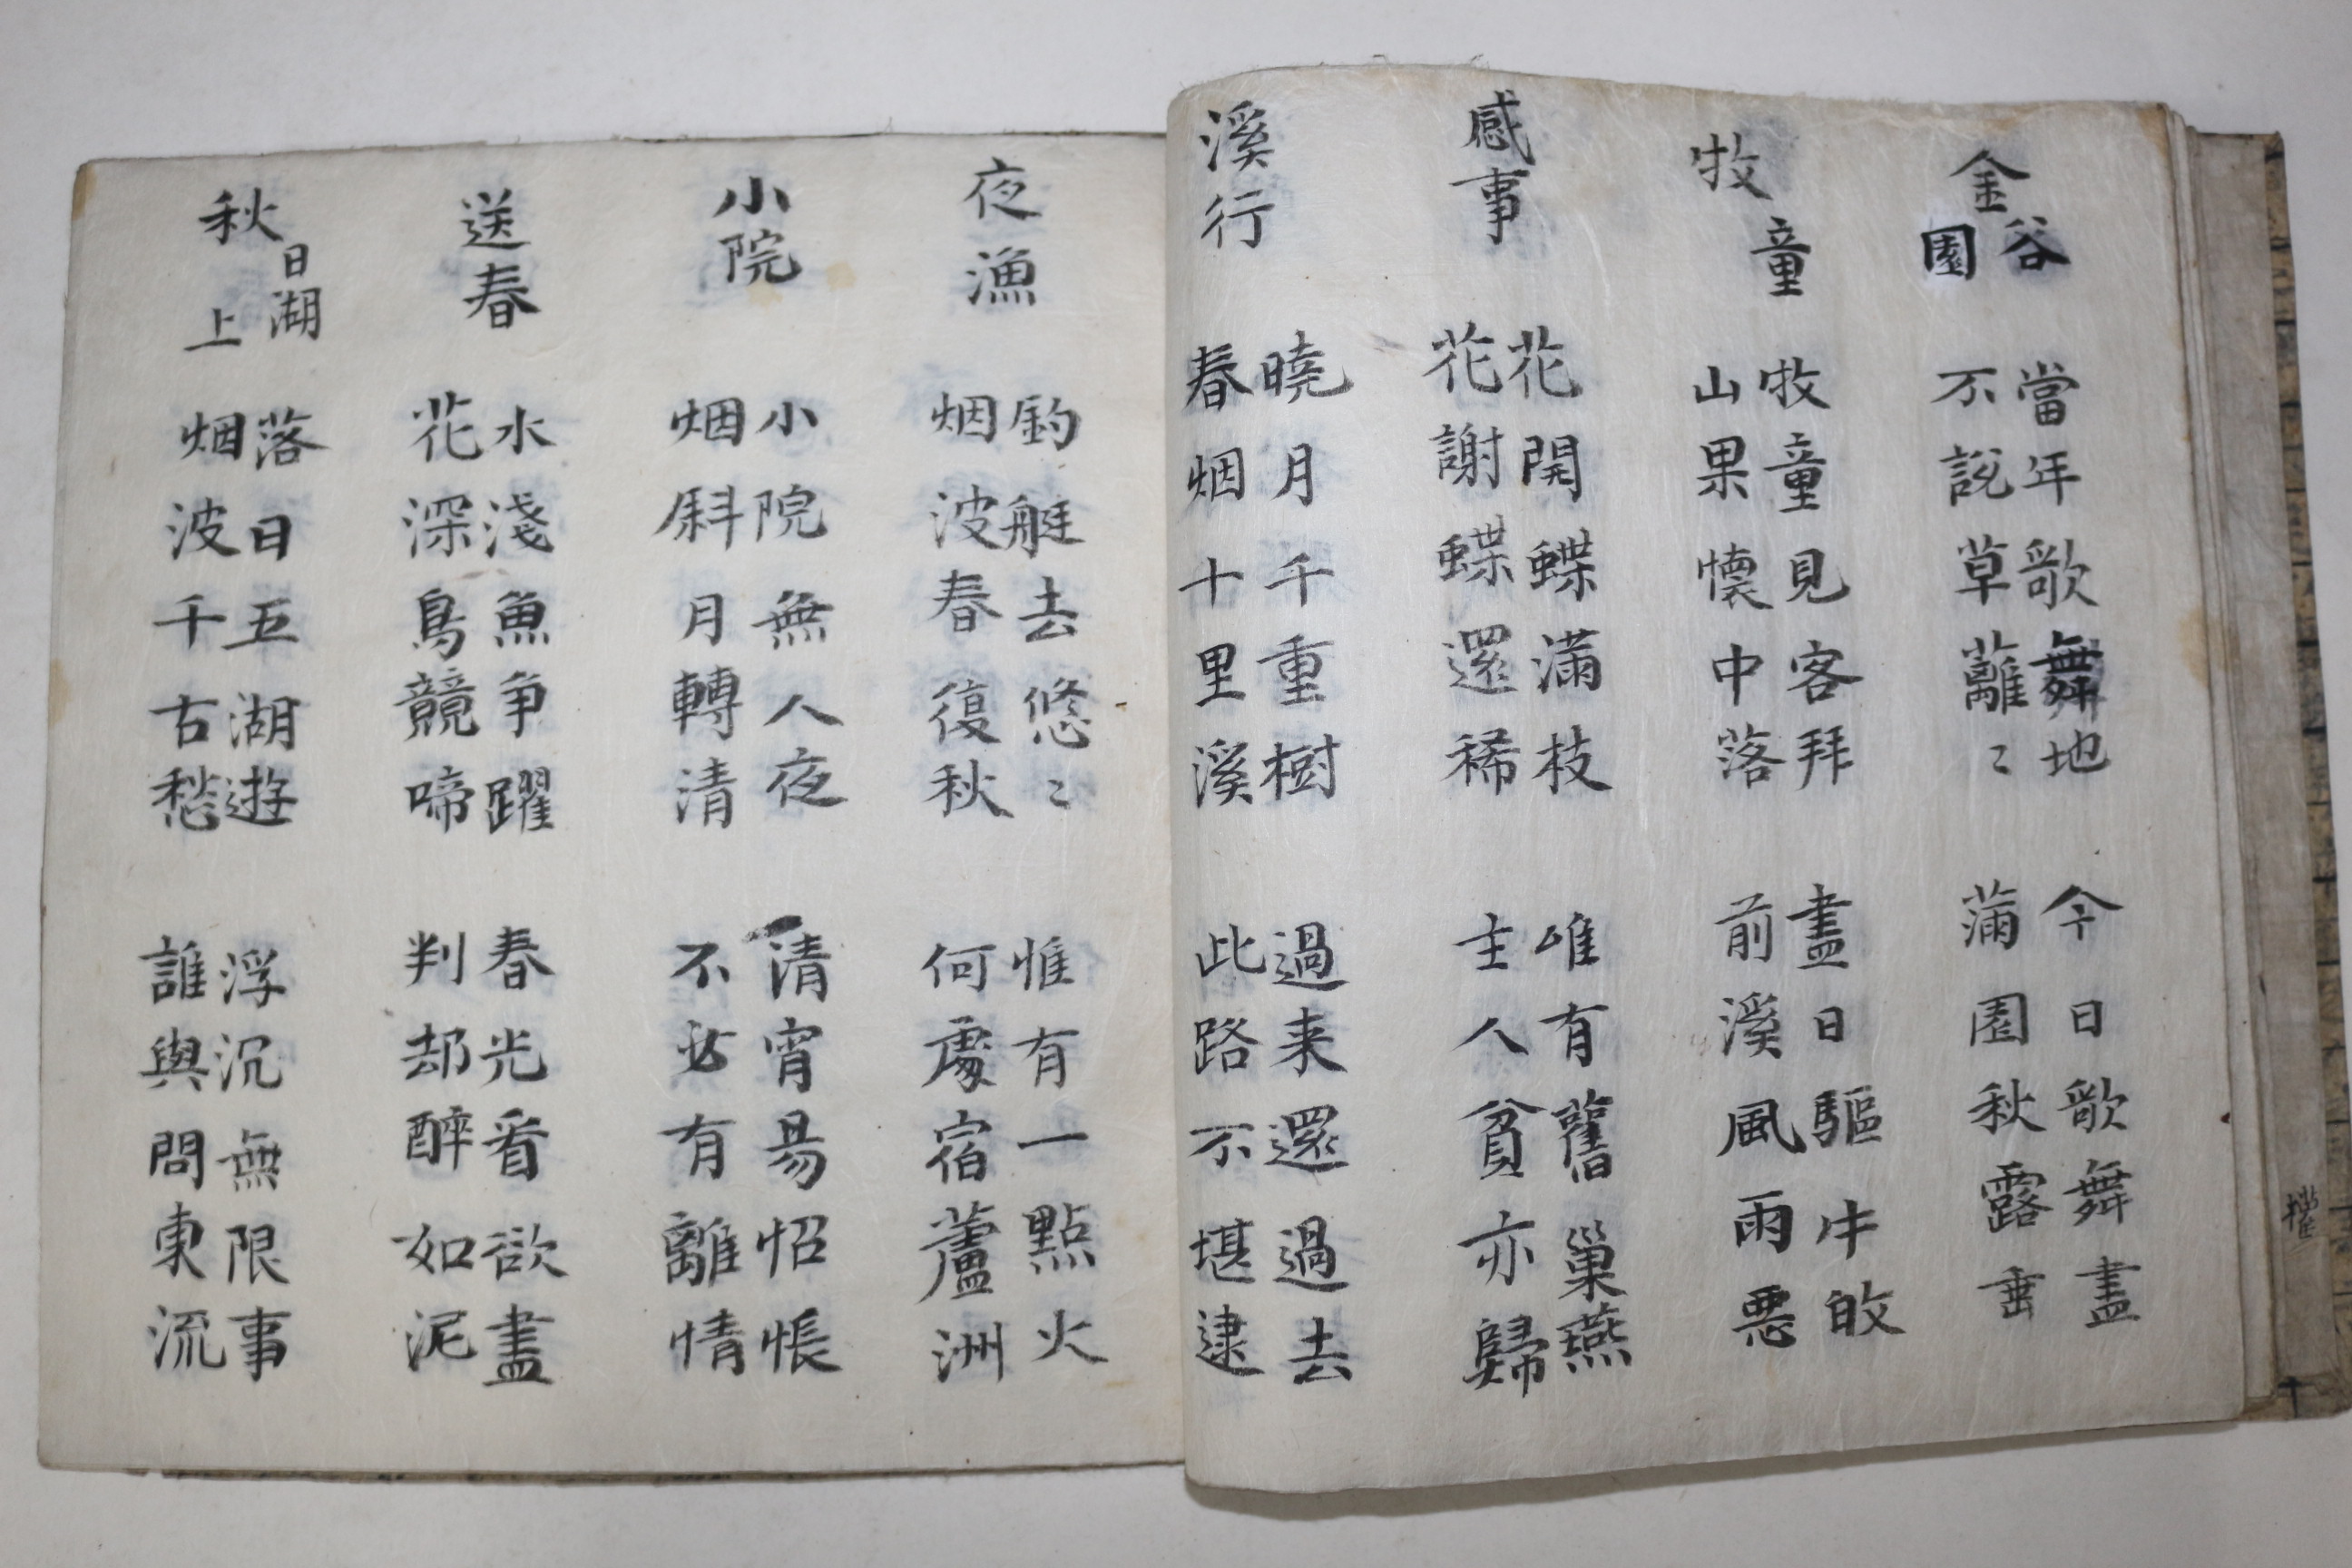 金谷園
當年歌舞地
不說草蘺〻
今日歌舞盡
滿園秋露垂
牧童
牧童見客拜
山果懷中落
盡日驅牛皈
前溪風雨惡
感事
花開蝶滿枝
花謝蝶還稀
唯有舊巢燕
主人貧亦歸
溪行
曉月千重樹
春烟十里溪
過来還過去
此路不堪逮
夜漁
釣艇去悠〻
烟波春復秋
惟有一點火
何處宿蘆洲
小院
小院無人夜
烟斜月轉清
清宵易怊悵
不必有離情
送春
水淺魚争躍
花深鳥競啼
春光看欲盡
判却醉如泥
秋日湖上
落日五湖遊
烟波千古愁
浮沉無限事
誰與問東流